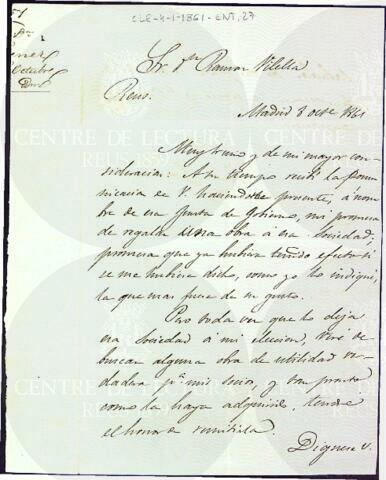 CLE-4-1-1861-ENT, 27
Octubre
Sr. Dn Ramon Vilella
Reus.
Madrid 8 octe 1861
Muy Sr. mio y de mi mayor con-
sideracion: A su tiempo recibí la comu-
nicacion de V. haciendome presente, á nom-
bre de esa Junta de Gobierno, mi promesa
de regalar una obra á esa Sociedad,
promesa que ya hubiera tenido efecto si
se me hubiera dicho, como yo lo indiqué,
la que mas fuese de su gusto.
Pero toda vez que lo deja
esa Sociedad á mi eleccion, veré de
buscar alguna obra de utilidad ver-
dadera pa. mis socios, y tan pronto
como la haya adquirido, tendré
el honor de remitirla.
Dignese V.
CENTRE DE LECTURA
REUS 1859
CENTRE DE LECTURA
REUS 1859